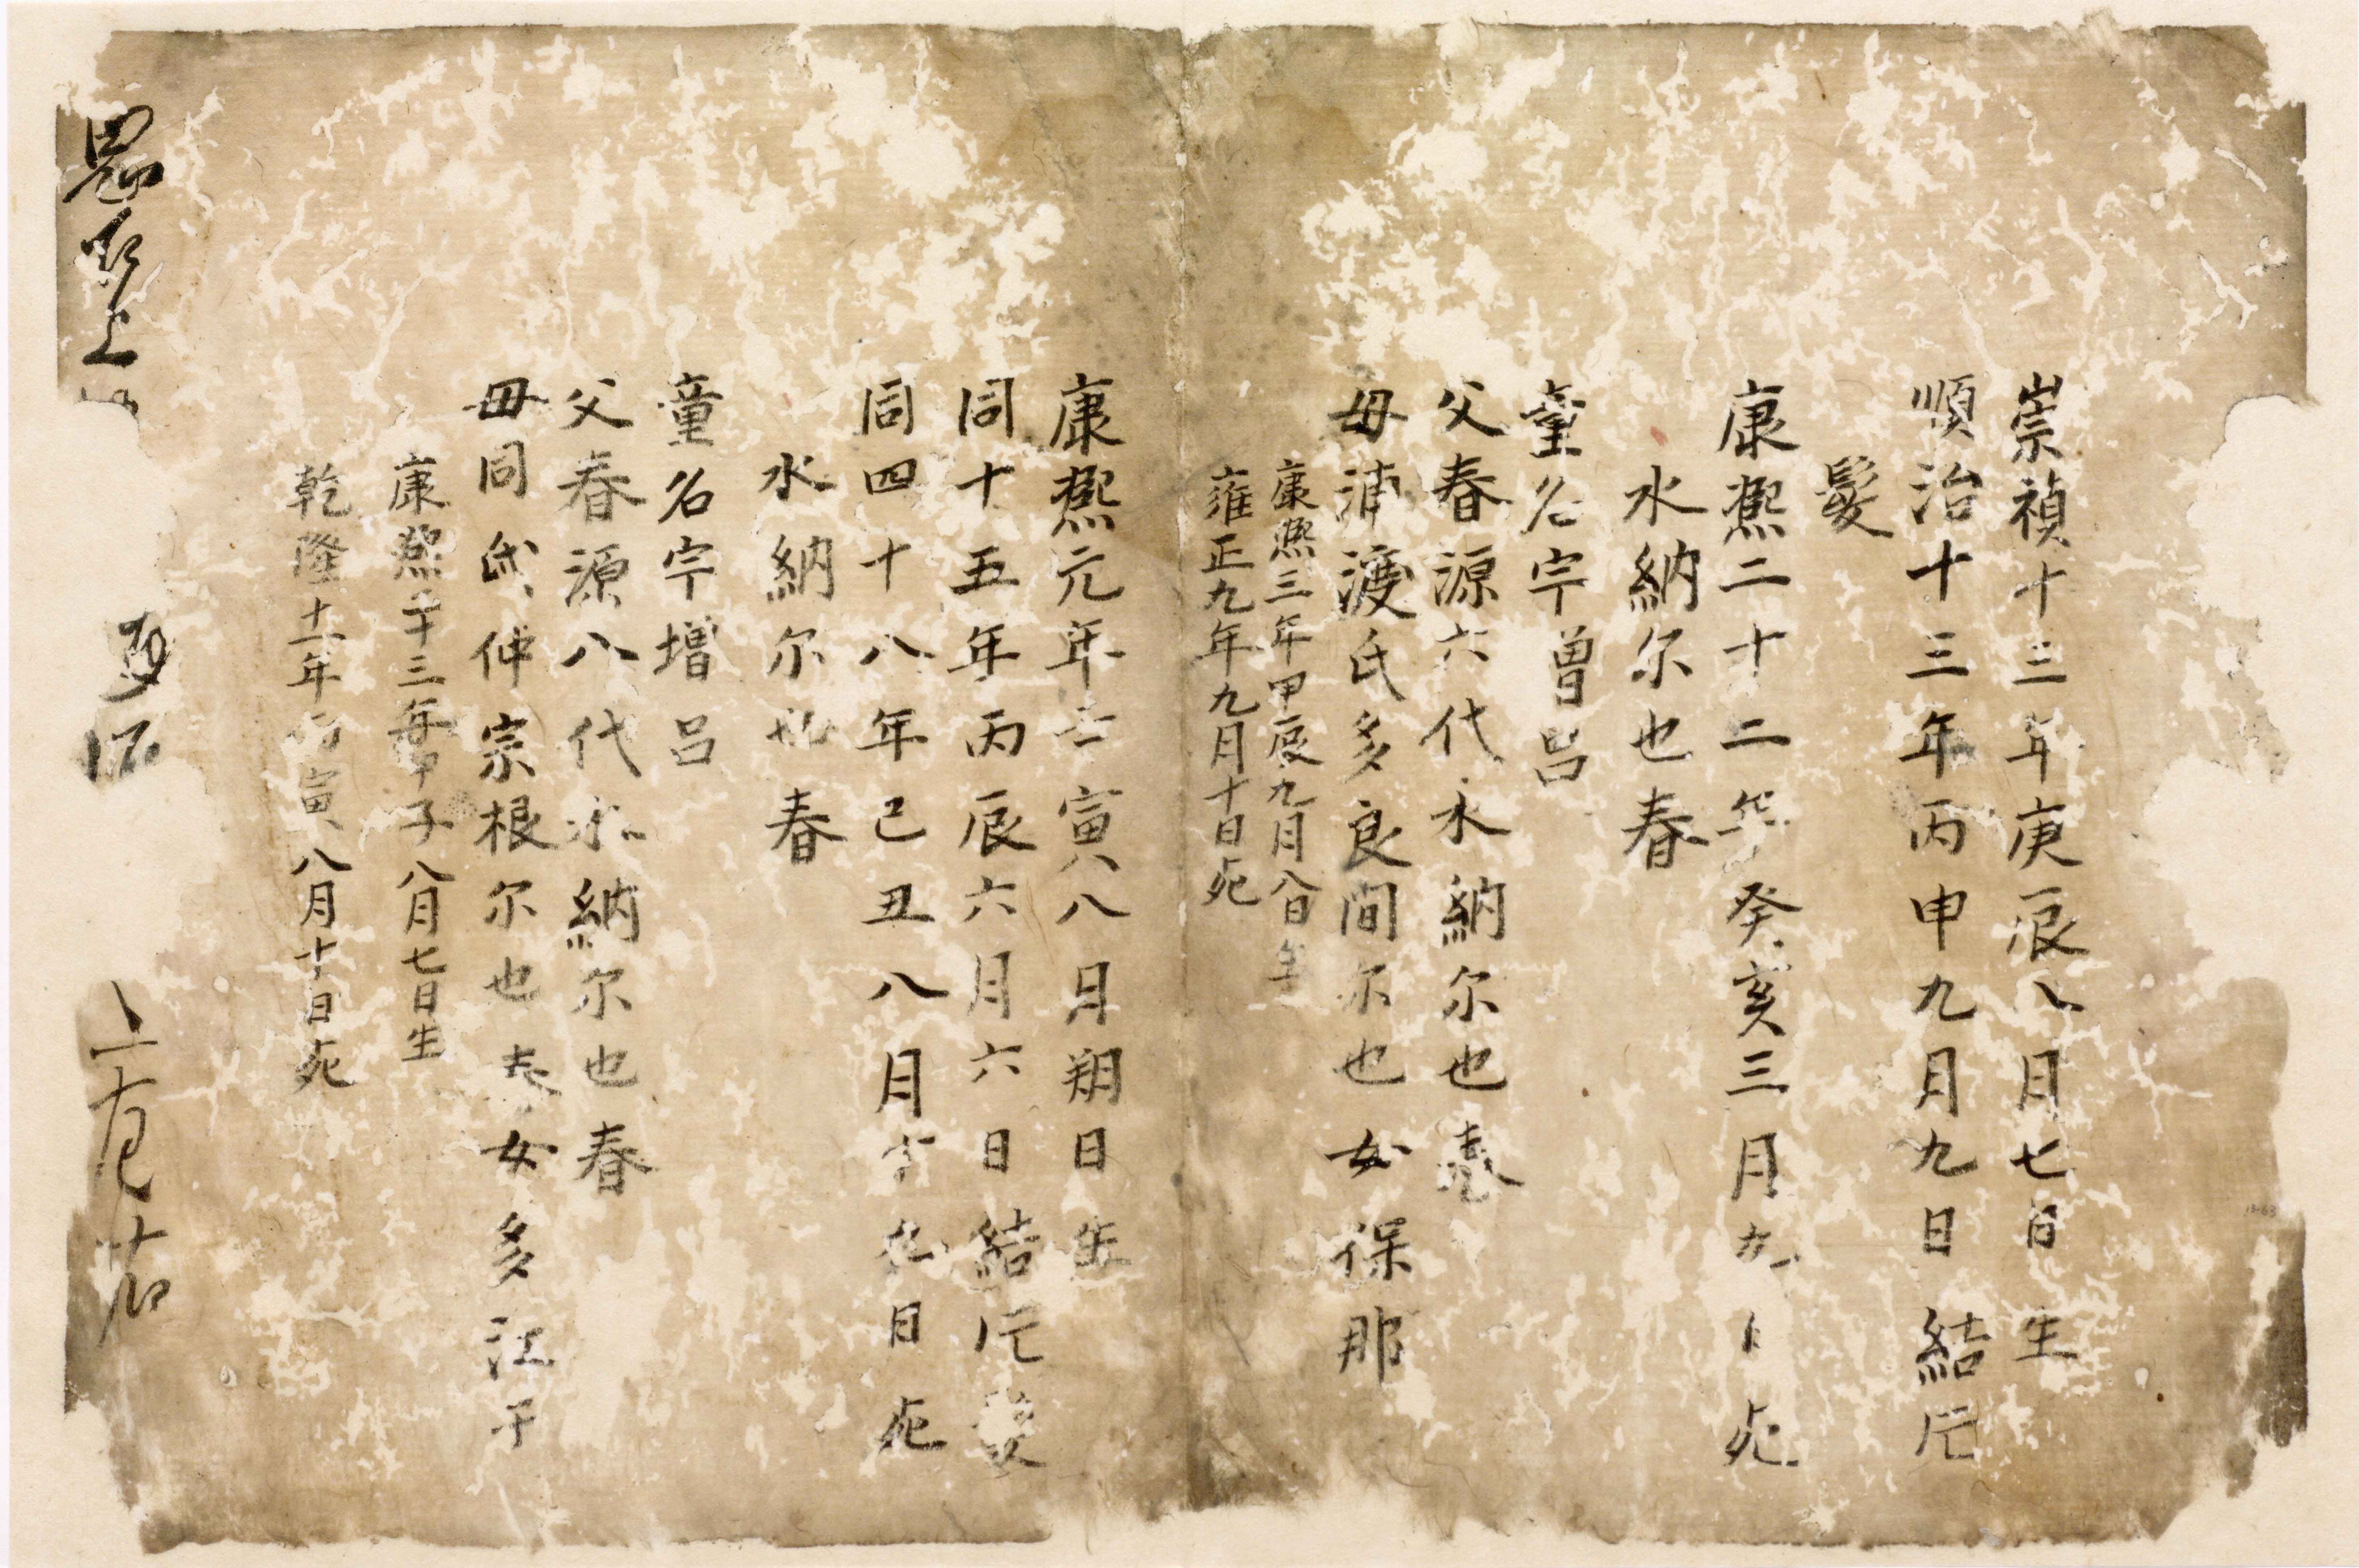 崇禎十三年庚辰八月七日生
順治十三年丙申九月九日結𠂆
髮
康熙二十二年癸亥三月九日死
水納尔也春
童名宇曽呂
父春源六代水納尔也
母浦渡氏多良間尔也女保那
康熙三年甲辰九月八日生
雍正九年九月十日死
康熙元年壬寅八月朔日生
同十五年丙辰六月六日結髮
同四十八年己丑八月日死
水納尔也春
童名宇増呂
父春源八代水納尔也春
母同氏仲宗根尔也春女多江于
康熙二十三年甲子八月七日生
乾隆十一年丙寅八月十日死